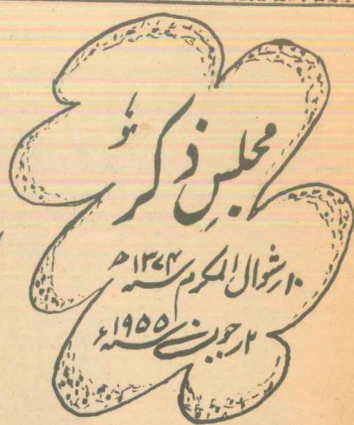 مجلسِ ذکر
۱۰ شوال المکرم سنہ ۱۳۷۴ھ
۲ جون سنہ ۱۹۵۵ء